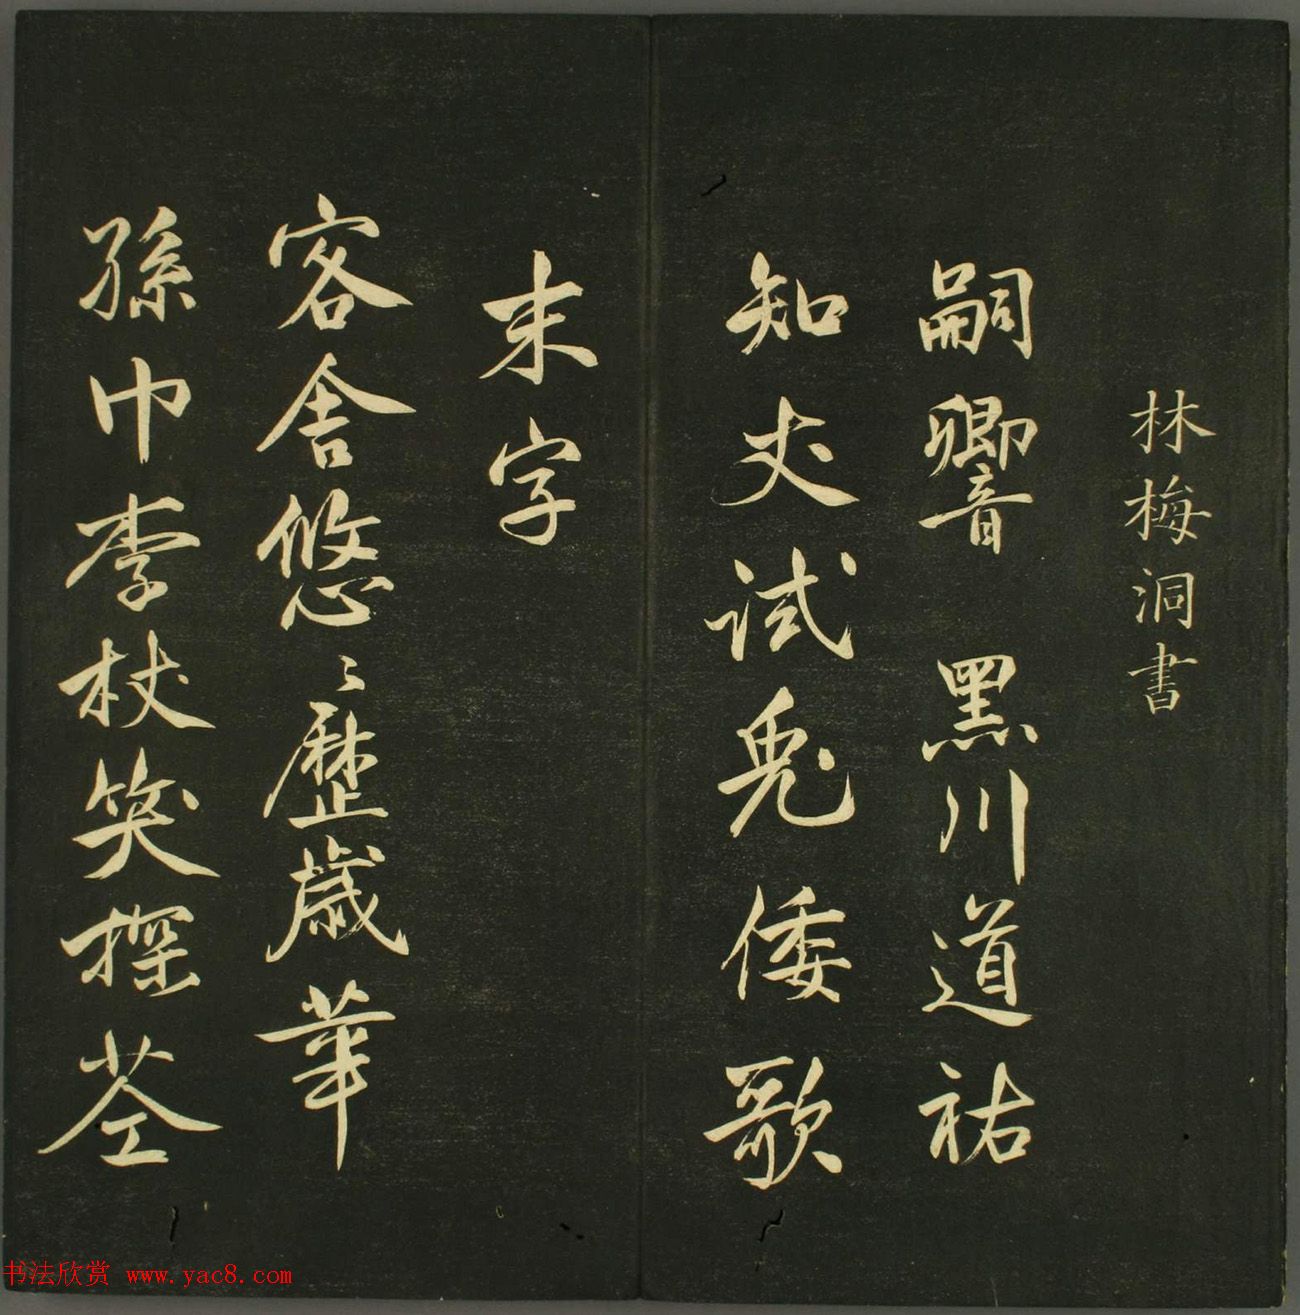 林梅洞書
嗣響 黑川道祐
知丈試兎倭歌
末字
客舍悠〻歷歲華
孫巾李杖笑探荃
书法欣赏 www.yac8.com